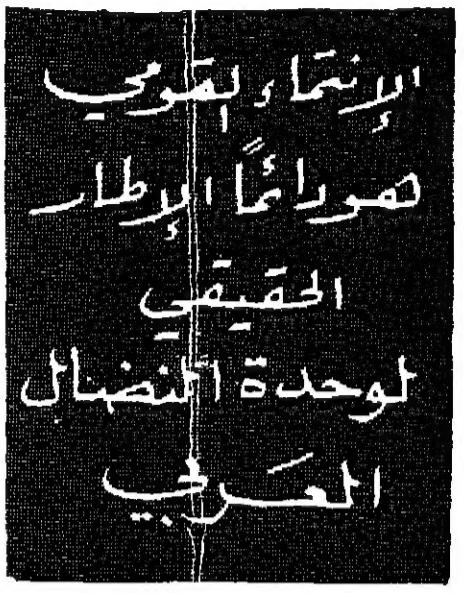 الإنتماء القومي
هو دائمًا الإطار
الحقيقي
لوحدة النضال
العَربي